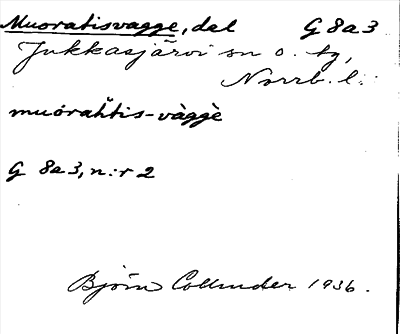 Muoratisvagge, dal G 8a3
Jukkasjärvi sn o. tg,
Norrb. l.
muorahtis-vàggè
G 8a3, n:r 2
Björn Collinder 1936.